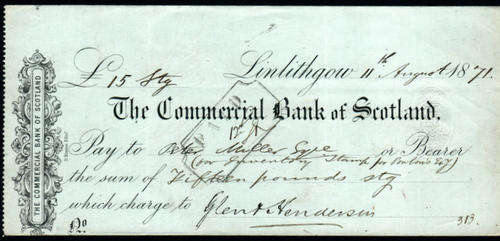 THE COMMERCIAL BANK OF SCOTLAND
£ 15 Stg Linlithgow 11th August 1871.
The Commercial Bank of Scotland.
PAID
Pay to Peter Miller Esqre or Bearer
(for Inventory Stamp
the sum of Fifteen pounds stg
which charge to Glen & Henderson
No 313